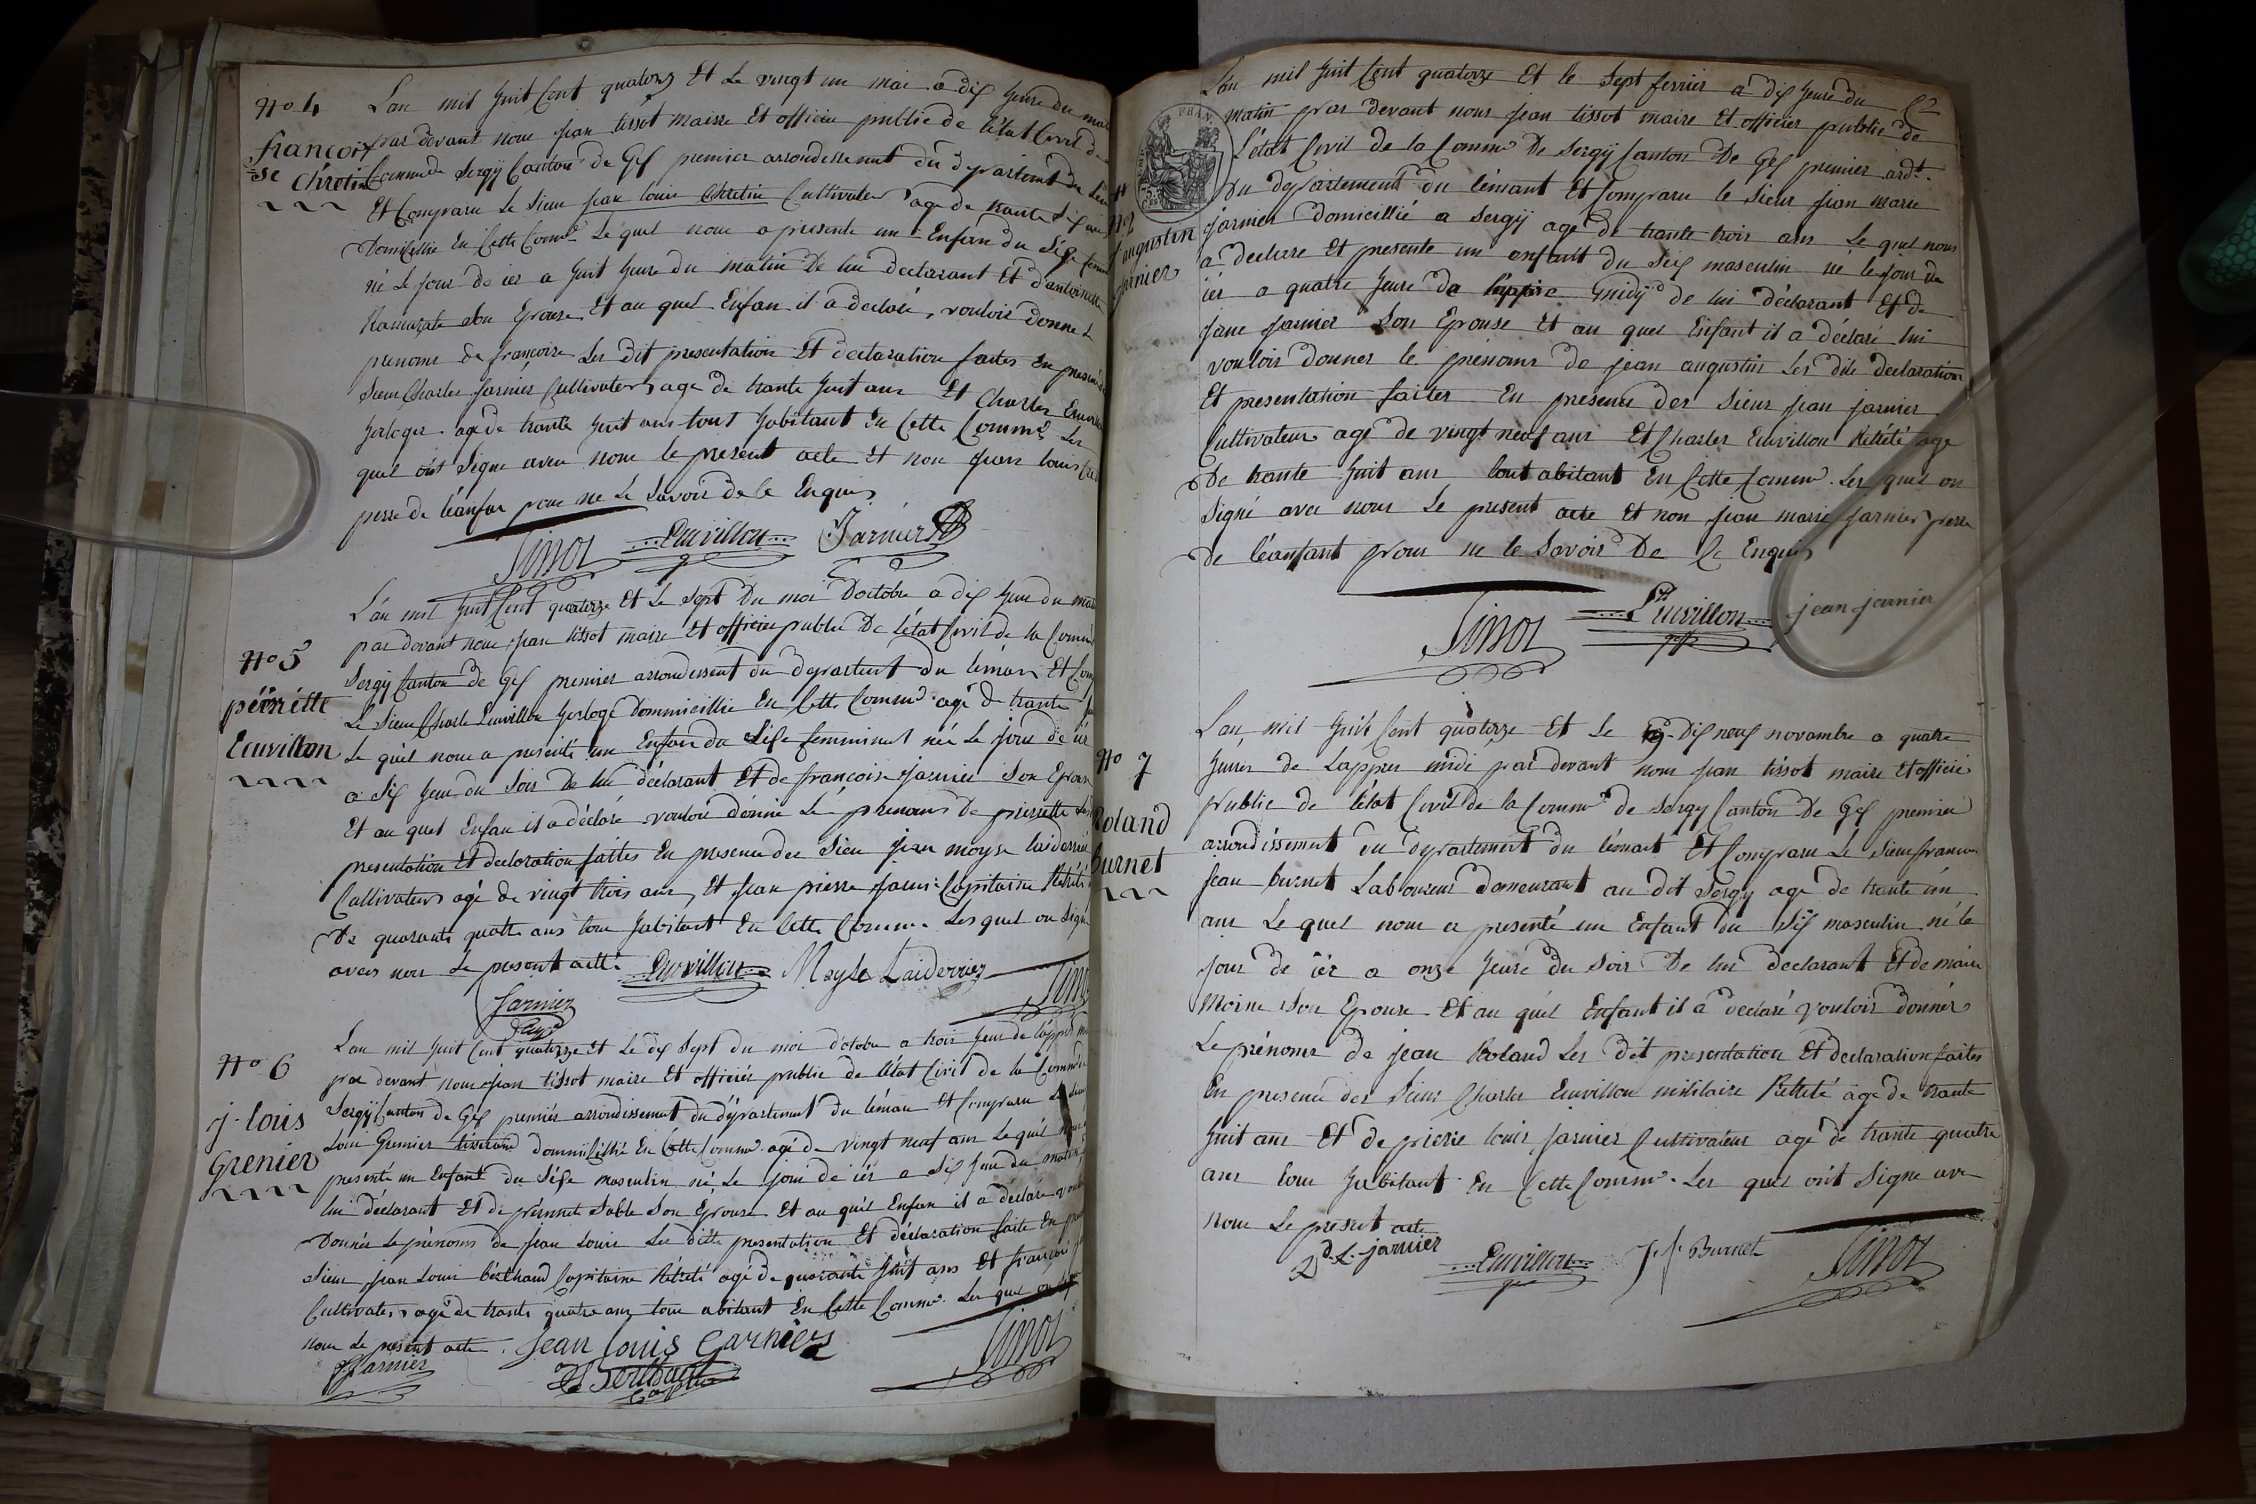 No 4
françoi
se Chrétin
L'an mil huit Cent quatorz Et Le vingt un mai a dix heure du mat
par devant nous jean tissot maire Et officier public de l'état Civil de
Commune Sergÿ Canton de Gex premier arrondissement du departement du Lém
Et Comparu Le Sieur jean louis Chretin Cultivateur agé de trante six ans
Domicillié En Cette Comme Le quel nous a presenté un Enfan du Sexe femi
né Le jour de ier a huit heure du matin De lui declarant Et d'antoinette
son Epouse Et au quel Enfan il a declaré, vouloir donner Le
prenoms de françoise Les dit presentation Et declaration faites En presence
Sieur Charles jarnier Cultivateur agé de trante huit ans Et Charles Euvrillon
horloger agé de trante huit ans tout habitant En Cette Comme Les
quel ont Signé avec nous le present acte Et non jean louis
perre de l'éanfan pour ne Le Savoir de Ce Enquis
Tissot Euvrillon Jarnier
No 5
pérriétte
Euvrillon
L'an mil huit Cent quatorze Et Le Sept Du moi D'octobre a dix heure du mat
par devant nous jean tissot maire Et officier public De l'état Civil de la Commune
Sergÿ Canton de Gex premier arrondissement du departement du léman Et Comp
Le Sieur Charle Euvrillon horloge Dommicillié En Cette Comme agé de trante
Le quél nous a présenté un Enfan du Sexe femminine née Le jour de ier
a Six heure du Soir De lui déclarant Et de françoise jarnier Son Epouse
Et au quel Enfan il a déclaré vouloir donné Lé prénoms De pierrette Les
présentation Et declaration faittes En presence des Sieur jean moyse laiderrier
Cultivateur agé de vingt trois ans, Et jean pierre jarnier Capitaine Retrété
De quarante quatre ans tous habitant En Cette Comme Les quel on Signé
avec nous Le present actte Euvrillon Moyse Laiderrier Tissot
Jarnier
Capne
No 6
j. louis
Grenier
L'an mil huit Cent quatorze Et Le dix Sept du moi d'octobre a trois heure de l'appre mi
par devant nous jean tissot maire Et officiér public de l'état Civil de la Comme
Sergÿ Canton de Gex premier arrondissement du département du léman Et Comparu Le Sieur
Louis Grenier tisserand dommicillié En Cette Comme agé de vingt neuf ans Le quél nous
presenté un Enfant du Séxe masculin né Le jour de iér a Six heure du matin
lui déclarant Et de Sable Son Epouse Et au quél Enfan il a déclaré voul
Donnér Le prénoms de jean Louis Les ditte presentation Et déclaration faite En pres
Sieur jean Louis bérthaud Capitaine Retrété agé de quarante huit ans Et françois
Cultivateur agé de trante quatre ans tous abitant En Cette Comme Les quel on
nous Le present acte. Jean Louis Garniers Tissot
Jarnier Berthaud
Capne
L'an mil huit Cent quatorze Et le Sept fevrier a dix heure du
matin par devant nous jean tissot maire Et officier public de
L'état Civil de la Comme De Sergÿ Canton De Gex premier ardt.
Du departement du lémant Et Comparu le Sieur jean marie
No 2
j. augustin
jarnier
jarnier domicillié a Sergÿ agé de trante trois ans Le quel nous
a declaré Et presente un anfant du Sex masculin né le jour de
ier a quatre heure de l'appré midÿ de lui déclarant Et de
jarnier Son Epouse Et au quel Enfant il a déclaré lui
vouloir donner le prenoms de jean augustin Les dite declaration
Et presentation faites En presence des Sieur jean jarnier
Cultivateur agé de vingt neuf ans Et Charles Euvrillon Rétété agé
De trante huit ans tout abitant En Cette Comme. Les quel on
Signé avec nous Le present acte Et non jean marie jarnier perre
De l'éanfant pour ne le Savoir De Ce Enquis
Tissot Euvrillon jean jarnier
No 7
Roland
Burnet
L'an mil huit Cent quatorze Et Le Dix neuf novembre a quatre
heures de L'appres midi par devant nous jean tissot maire Et officié
public de l'état Civil de la Comme de Sergÿ Canton De Gex premier
arrondissement du département du lémant Et Comparu Le Sieur françois
jean burnet Laboureur demeurant au dit Sergÿ agé de trante un
ans Le quel nous a presenté un Enfant du Sex masculin né le
jour de iér a onze heure du Soir De lui declarant Et de marie
Moine Son Epouse Et au quél Enfant il a declaré vouloir donnér
Le prénoms de jean Roland Les dit presentation Et declaration faites
En presence des Sieur Charles Euvrillon militaire Retteté agé de trante
huit ans Et de pierre louis jarnier Cultivateur agé de trante quatre
ans tous habitant En Cette Comme. Les quel ont Signe ave
nous Le presnt acte
L. jarnier Euvrillon J. f. Burnet Tissot